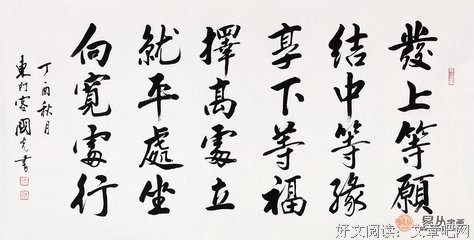 發上等願
結中等緣
享下等福
擇高處立
就平處坐
向寬處行
丁酉秋月
國光書
易从字画
好文阅读：文章吧网